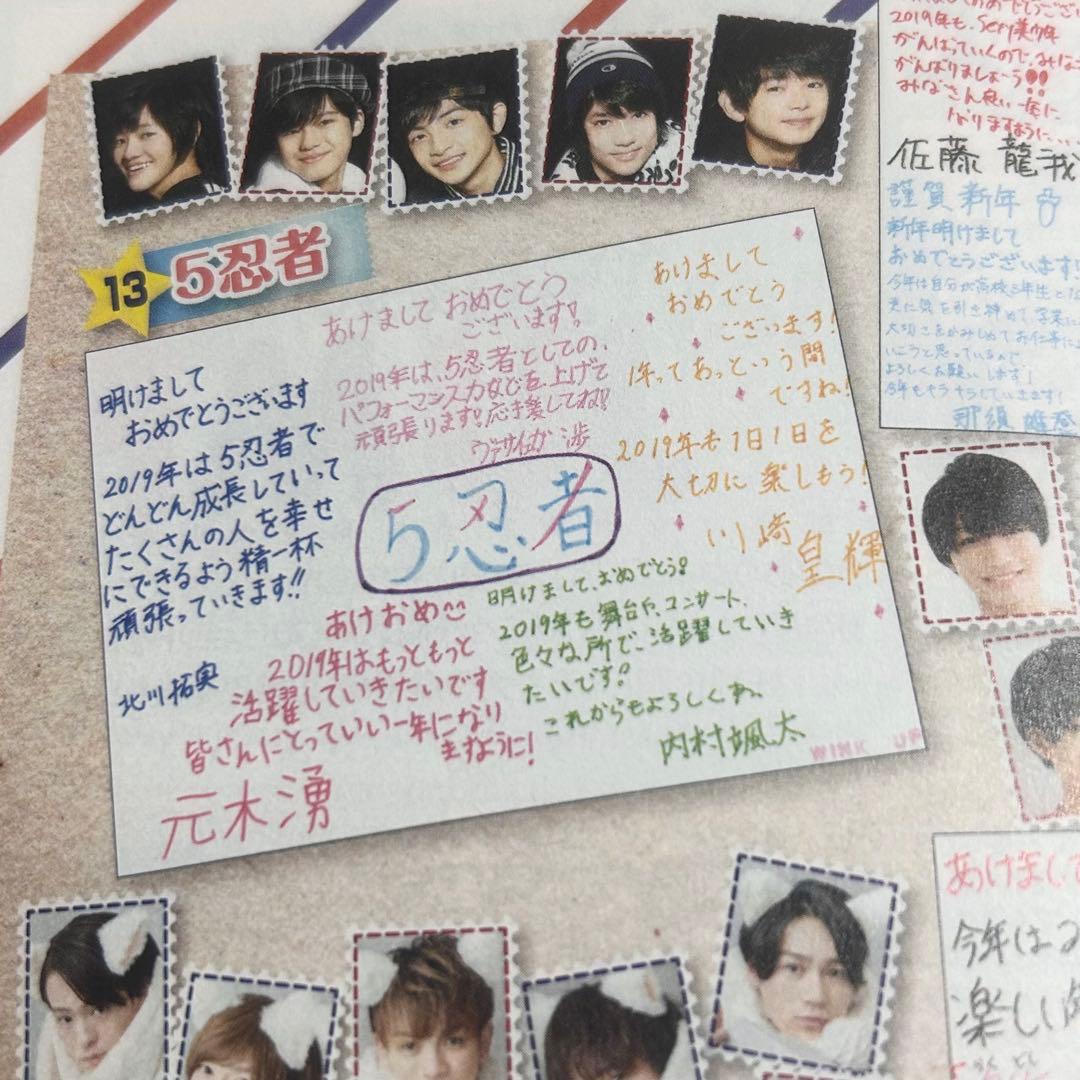 13
5忍者
あけまして おめでとう
ございます!
2019年は、5忍者としての、
パフォーマンス力などを上げて
頑張ります!応き援してね!
ヴァサイェガ 渉
あけまして
おめでとう
ございます!
1年ってあっという間
ですね!
2019年も1日1日を
大切に楽しもう!
川﨑
皇輝
明けまして
おめでとうございます
2019年は5忍者で
どんどん成長していって
たくさんの人を幸せ
にできるよう精一杯
頑張っていきます!!
北川拓実
5忍者
あけおめ
2019年はもっともっと
活躍していきたいです
皆さんにとっていい一年になり
ますように!
元木湧
明けまして、おめでとう!
2019年も舞台や、コンサート、
色々な所で、活躍していき
たいです!
これからもよろしくね。
内村颯太
WINK UP
2019年も、
がんばっていくので、
がんばりましょーう!!
みなさん良い年に
なりますように...
佐藤 龍我
謹賀新年
新年明けまして
おめでとうございます!
今年は自分が高校3年生と
更に気を引き締めて、学業に
大切さをかみしめてお仕事に
いこうと思っているので
よろしくお願いします!
今年もキラキラしていきます!
那須 雄登
あけまして
今年は
楽しい